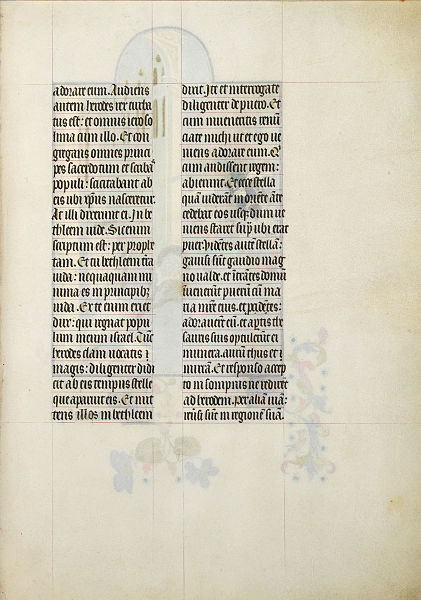 adorare eum. Audiens
autem herodes rex turba
tus est: et omnis ieroso
lima cum illo. Et con
gregans omnes princi
pes sacerdotum et scribas
populi: sciscitabatur ab
eis ubi xpristus nasceretur.
At illi dixerunt ei. In be
thleem iude. Sic enim
scriptum est: per prophe
tam. Et tu bethleem terra
iuda: nequaquam mi
nima es in principibus
iuda. Ex te enim exiet
dux: qui regnat popu
lum meum israel. Tunc
herodes clam uocatis
magis: diligenter didi
cit ab eis tempus stelle
que apparuit eis. Et mit
tens illos in bethleem
dixit. Ite et interrogate
diligenter de puero. Et
cum inueneritis renun
ciate michi ut et ego ue
niens adorare eum. Qui
cum audissent regem:
abierunt. Et ecce stella
quam uiderant in oriente ante
cedebat eos usque dum ue
niens staret supra ubi erat
puer. Videntes autem stellam:
gauisi sunt gaudio mag
no ualde. et intrantes domum
inuenerunt puerum cum ma
ria matre eius. et procidentes:
adorauerunt eum. et apertis the
sauris suis optulerunt ei
munera. aurum thus et
mirram. Et responso accep
to in sompnis ne redirent
ad herodem. per aliam uiam:
reuersi sunt in regionem suam.